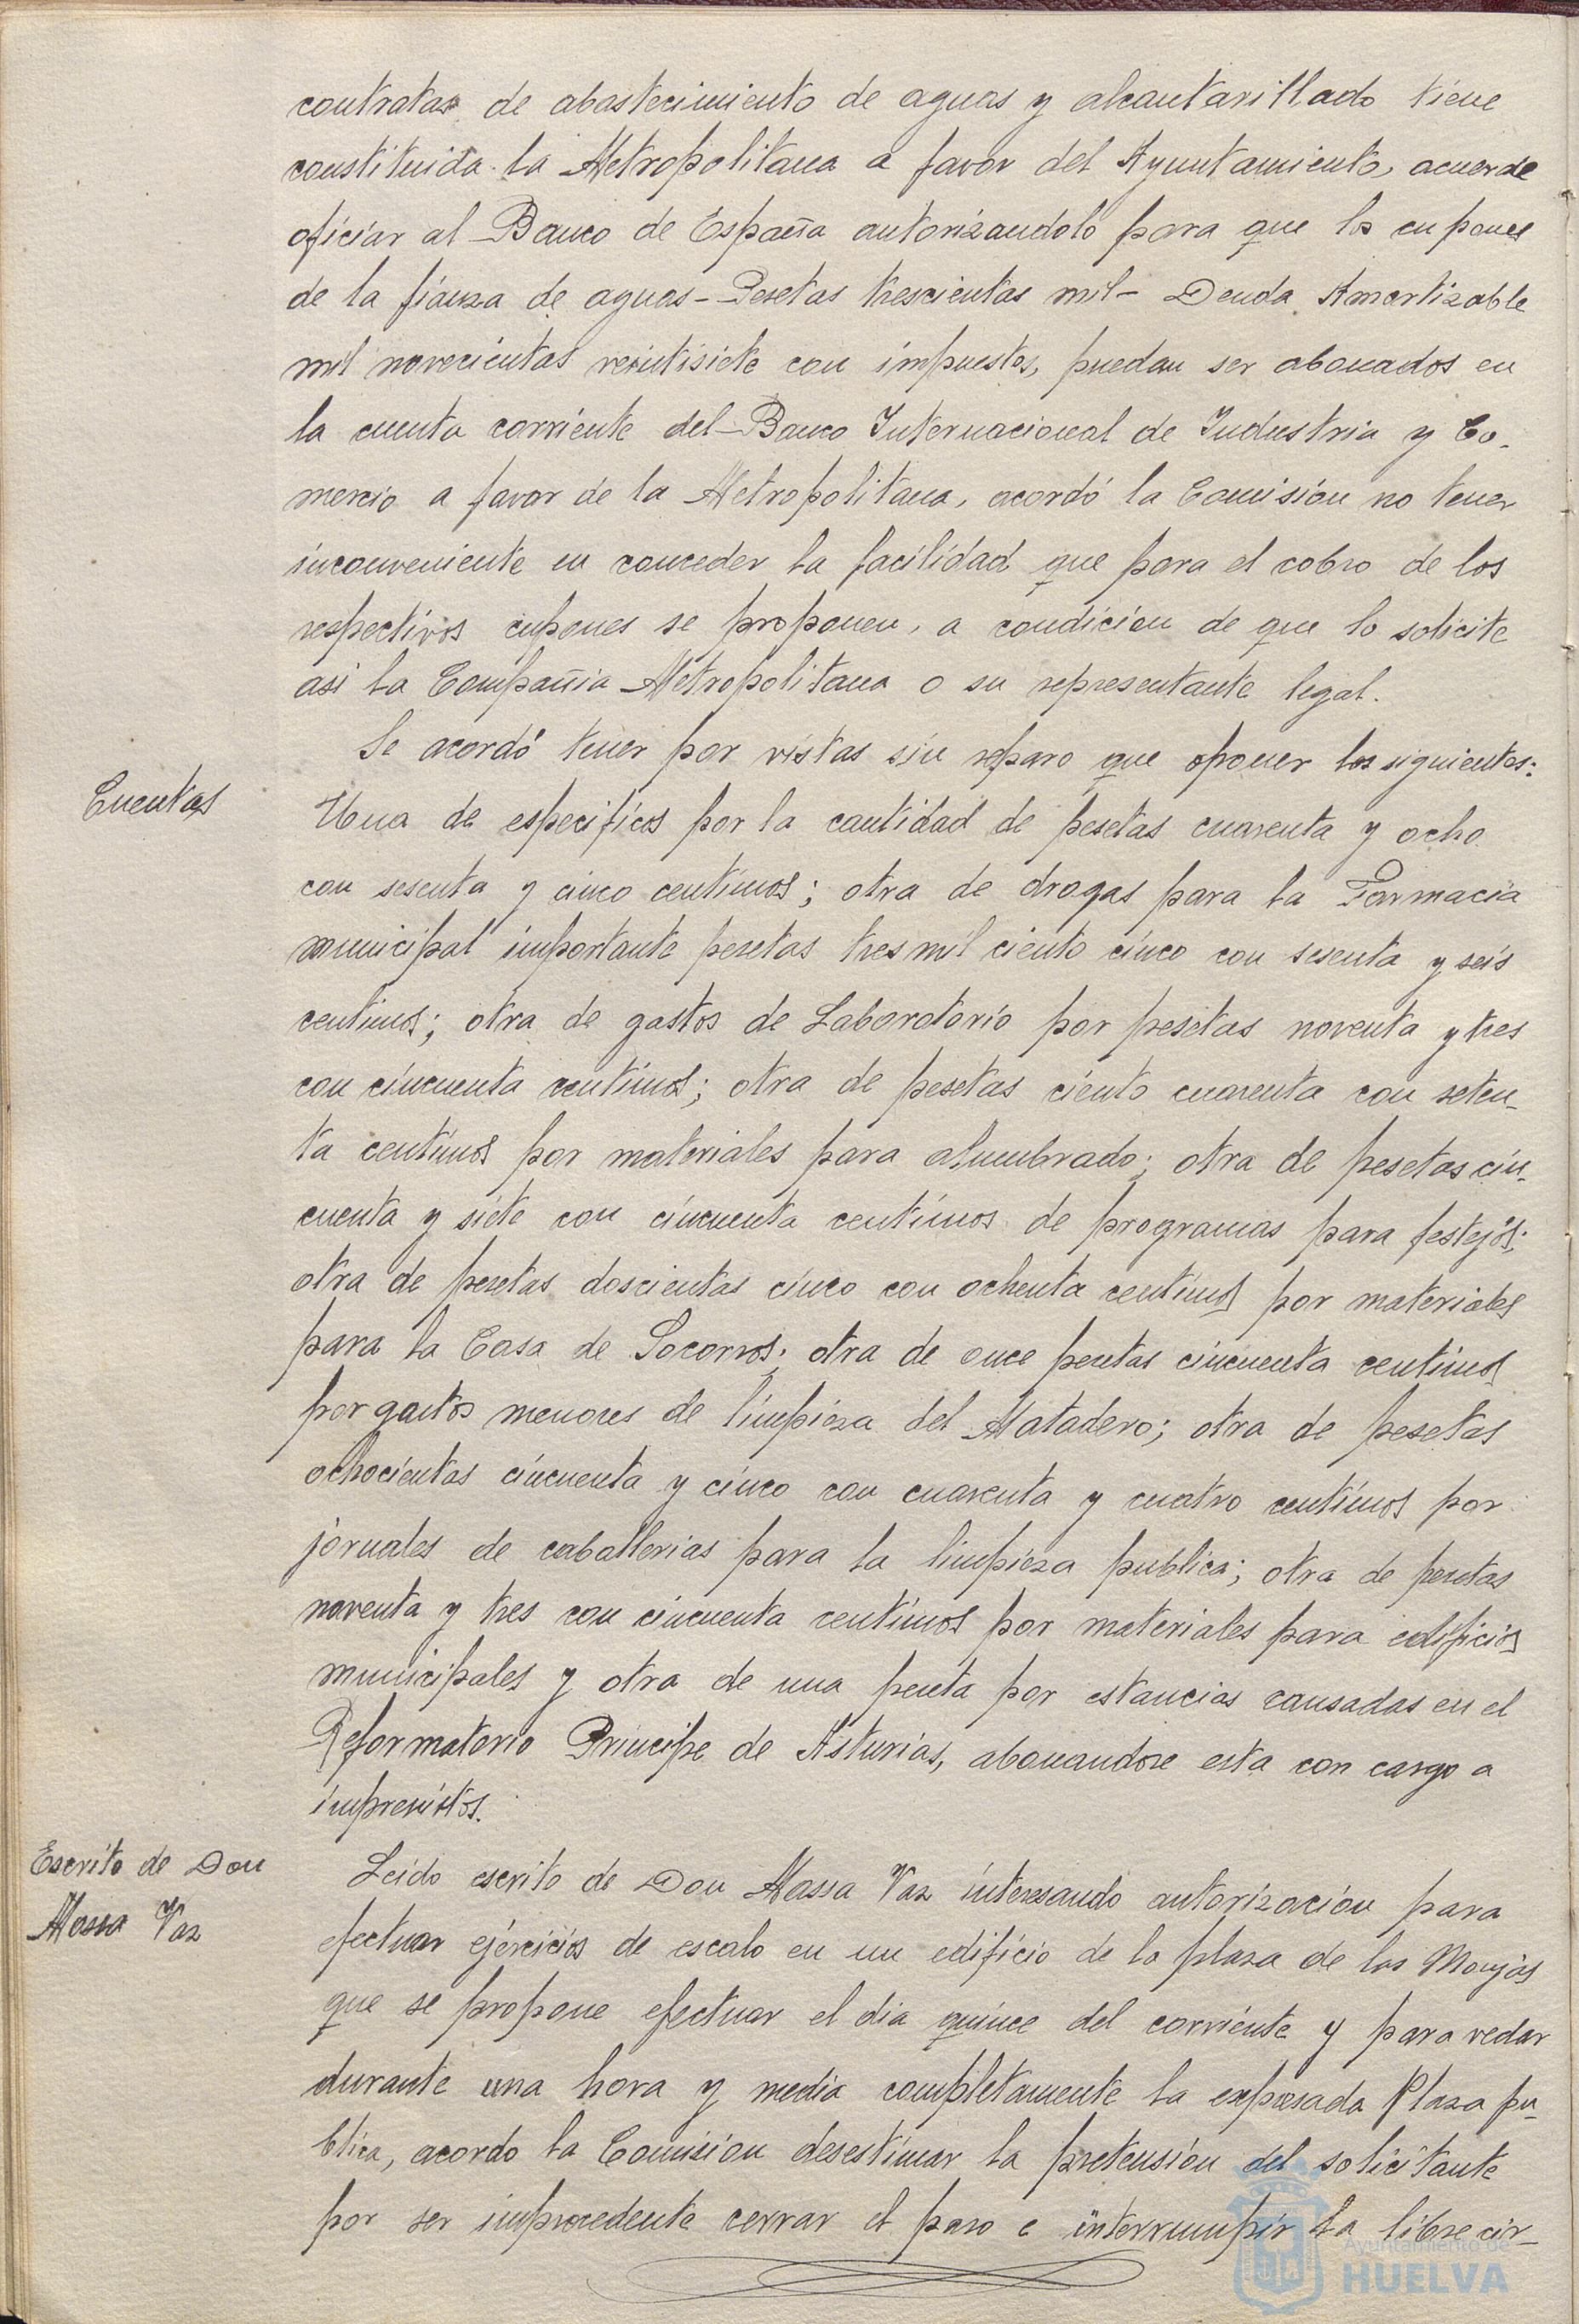 contratas de abastecimiento de aguas y alcantarillado tiene
constituida la Metropolitana a favor del Ayuntamiento, acuerde
oficiar al Banco de España autorizandolo para que los cupones
de la fianza de aguas - Pesetas trescientas mil - Deuda Amortizable
mil novecientas veintisiete con impuestos, puedan ser abonados en
la cuenta corriente del Banco Internacional de Industria y Co-
mercio a favor de la Metropolitana, acordó la Comisión no tener
inconveniente en conceder la facilidad que para el cobro de los
respectivos cupones se proponen, a condición de que lo solicite
asi la Compañia Metropolitana o su representante legal.
Se acordó tener por vistas sin reparo que oponer las siguientes:
Cuentas
Una de especificos por la cantidad de pesetas cuarenta y ocho
con sesenta y cinco centimos; otra de drogas para la Farmacia
municipal importante pesetas tres mil ciento cinco con sesenta y seis
centimos; otra de gastos de Laboratorio por pesetas noventa y tres
con cincuenta centimos; otra de pesetas ciento cuarenta con seten-
ta centimos por materiales para alumbrado; otra de pesetas cin-
cuenta y siete con cincuenta centimos de programas para festejos;
otra de pesetas doscientas cinco con ochenta centimos por materiales
para la Casa de Socorros; otra de once pesetas cincuenta centimos
por gastos menores de limpieza del Matadero; otra de pesetas
ochocientas cincuenta y cinco con cuarenta y cuatro centimos por
jornales de caballerias para la limpieza publica; otra de pesetas
noventa y tres con cincuenta centimos por materiales para edificios
municipales y otra de una peseta por estancias causadas en el
Reformatorio Principe de Asturias, abonandose esta con cargo a
imprevistos.
Escrito de Don
Massa Vaz
Leido escrito de Don Massa Vaz interesando autorización para
efectuar ejercicios de escalo en un edificio de la plaza de las Monjas
que se propone efectuar el dia quince del corriente y para vedar
durante una hora y media completamente la expresada Plaza pu-
blica, acordo la Comision desestimar la pretensión del solicitante
por ser improcedente cerrar el paso e interrumpir la libre cir-
Ayuntamiento de
HUELVA